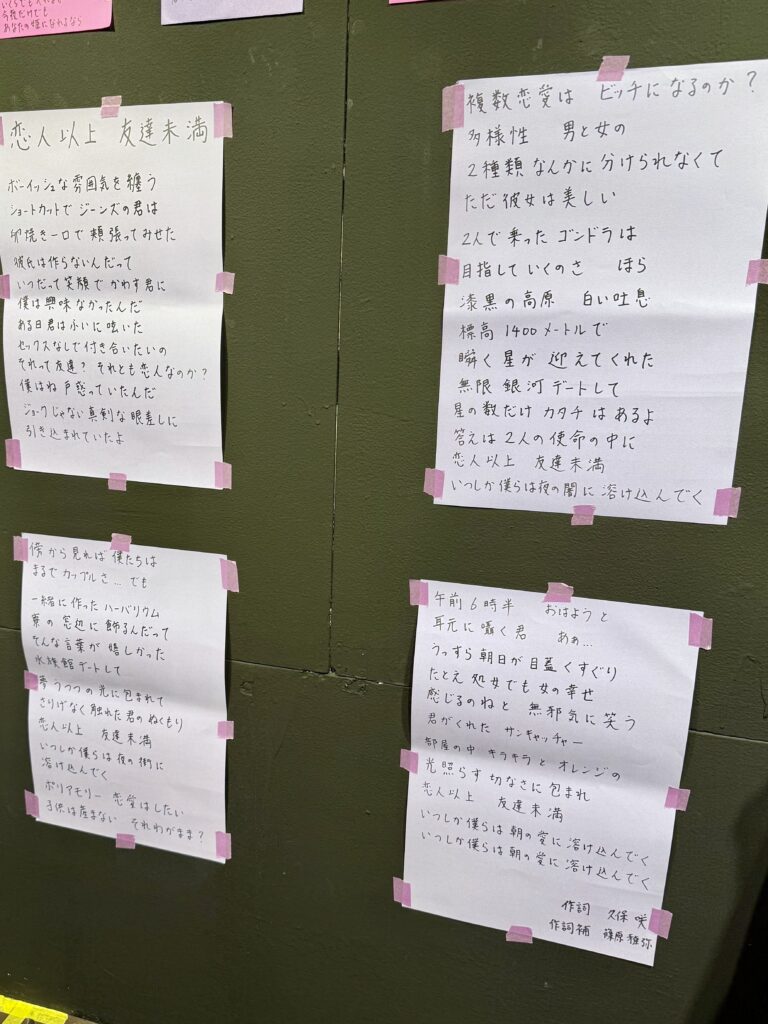 いくらでも
今夜だけでも
あなたの煙になれるなら
恋人以上 友達未満
ボーイッシュな雰囲気を纏う
ショートカットで ジーンズの君は
卵焼き一口で 頬張ってみせた
彼氏は作らないんだって
いつだって笑顔で かわす君に
僕は興味なかったんだ
ある日君は小いに呟いた
セックスなしで付き合いたいの
それって友達? それとも恋人なのか?
僕はね 戸惑っていたんだ
ジョークじゃない 真剣な眼差しに
引き込まれていたよ
傍から見れば 僕たちは
まるでカップルさ… でも
一緒に作った ハーバリウム
寮の窓辺に飾るんだって
そんな言葉が 嬉しかった
水族館デートして
夢うつつの光に包まれて
さりげなく触れた君のぬくもり
恋人以上 友達未満
いつしか僕らは夜の街に
溶け込んでく
ポリアモリー 恋愛はしたい
子供は産まない それわがまま?
複数恋愛は ビッチになるのか?
多様性 男と女の
2種類なんかに分けられなくて
ただ彼女は美しい
2人で乗った ゴンドラは
目指していくのさ ほら
漆黒の高原 白い吐息
標高1400メートルで
瞬く星が 迎えてくれた
無限 銀河デートして
星の数だけ カタチはあるよ
答えは2人の使命の中に
恋人以上 友達未満
いつしか僕らは夜の闇に溶け込んでく
午前6時半 おはようと
耳元に囁く君 あぁ…
うっすら朝日が目蓋くすぐり
たとえ処女でも女の幸せ
感じるのねと 無邪気に笑う
君がくれた サンキャッチャー
部屋の中 キラキラと オレンジの
光照らす 切なさに 包まれ
恋人以上 友達未満
いつしか僕らは朝の空に溶け込んでく
いつしか僕らは朝の空に溶け込んでく
作詞 久保 咲
作詞補 篠原